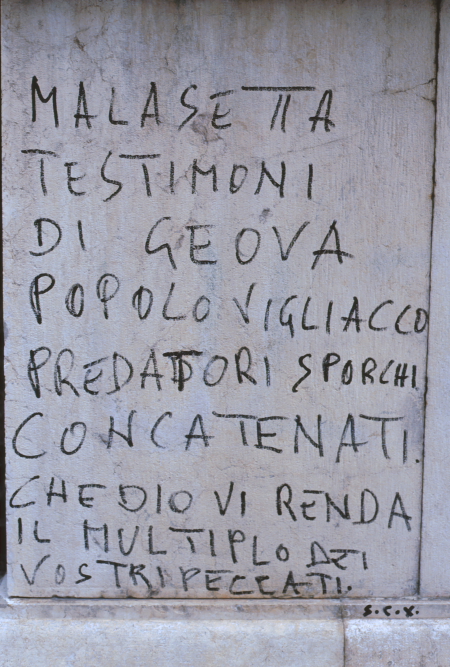 MALASETTA
TESTIMONI
DI GEOVA
POPOLO VIGLIACCO
PREDATTORI SPORCHI
CONCATENATI.
CHE DIO VI RENDA
IL MULTIPLO DEI
VOSTRI PECCATI.
S.C.X.